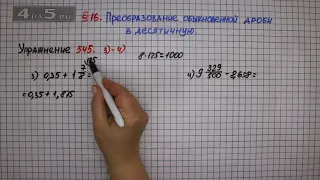 4 на 5.ru
§ 16. Преобразование обыкновенной дроби
в десятичную.
Упражнение 545. 3)-4)
8·125=1000
3) 0,35 + 1 7/8 =
4) 9 329/500 - 8,658=
= 0,35 + 1,875